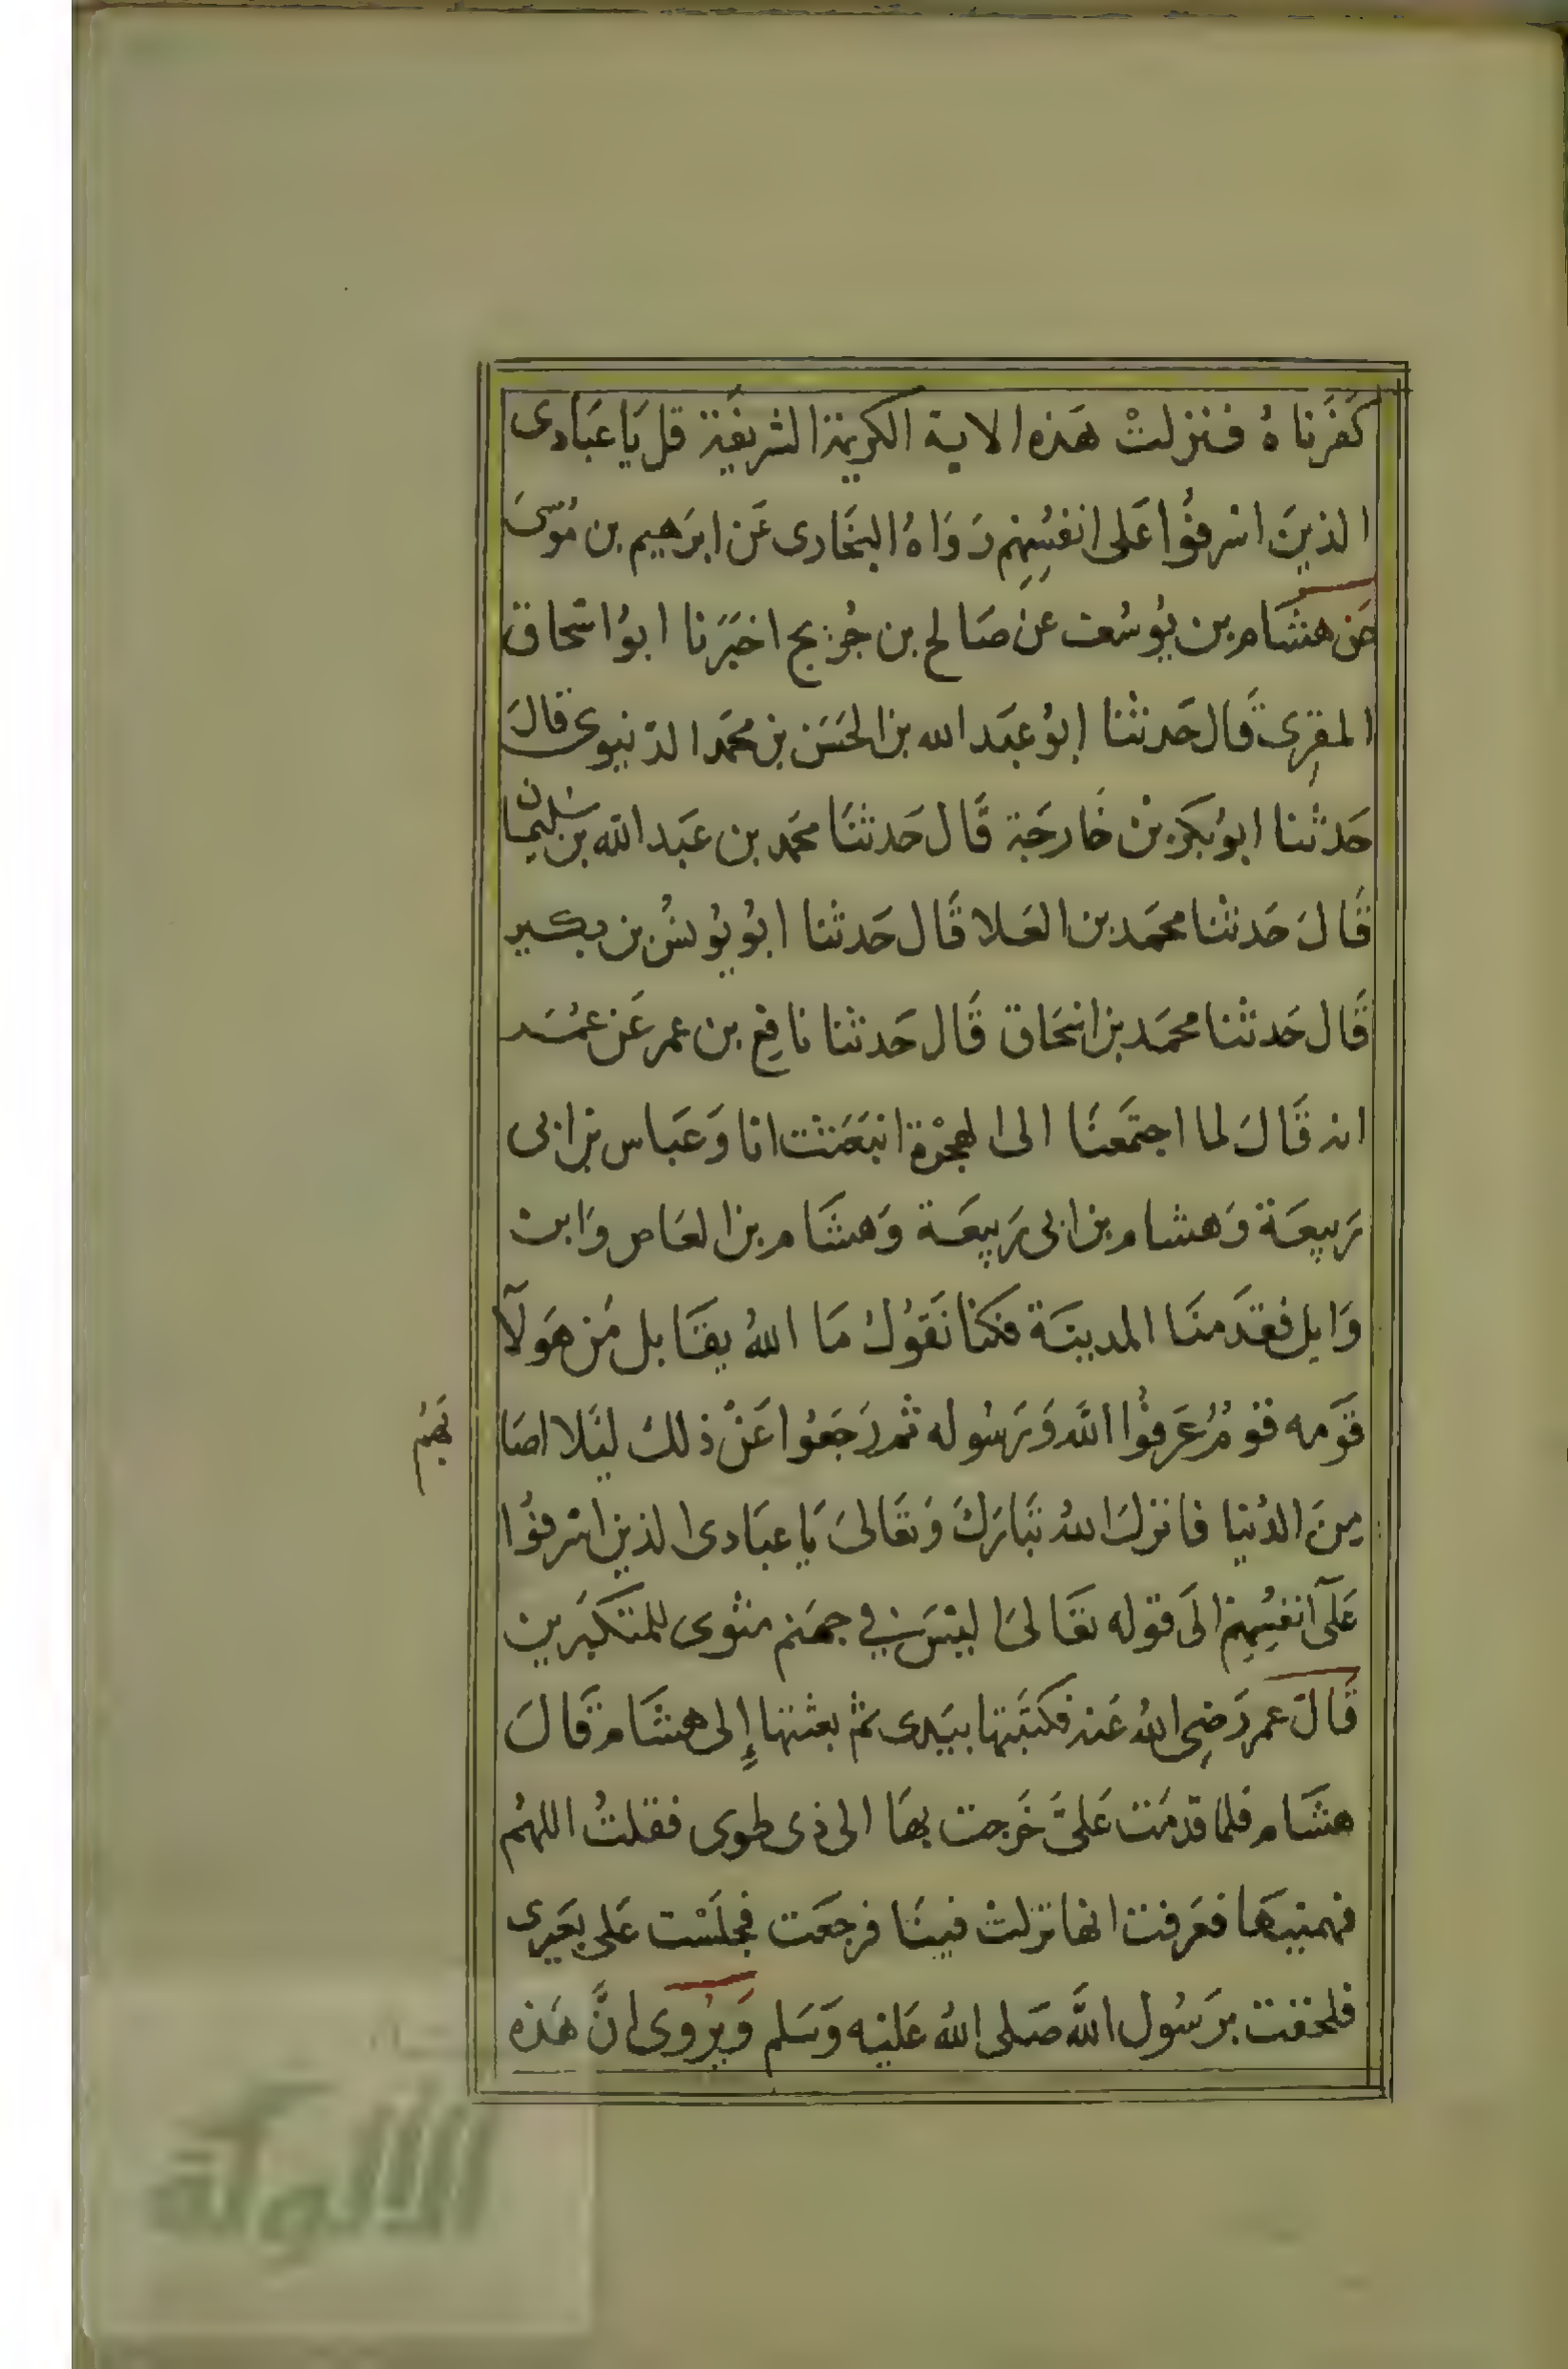 كفَرناهُ فنزلتْ هَذه الاية الكريمة الشريفَة قل يَا عبَادى
الذينَ اسْرفوُا عَلى انفسُهِم رَوَاهُ البخَارى عَن ابرَهيم بن مُوسىَ
عَن هشَام بن يوُسُف عنْ صَالح بن جُريج اخبَرَنا ابوُ اسْحاق
المقرِى قَال حَدثنا ابوُ عبَد الله بن الحَسَن بن محمَد الدّينوى قالَ
حَدثنا ابوُ بكَر بنْ خَارجَة قَال حَدثنَا محمَد بن عَبَد الله بن سُليمان
قَالَ حَدثنا محمَد بن العَلا قَال حَدثنا ابوُ يوُنسُ بن بكير
قَال حَدثنا محمَد بن اسْحَاق قَال حَدثنا نافِع بن عمر عَن عمُر
انه قَالَ لما اجتمَعنَا الى الهجْرة انبعَثت انا وَعَباس بن ابى
رَبيعَة وَهشام بن ابى رَبيعَة وَهشَام بن العَاص وَابن
وَايل فقدَمنَا المدينَة فكنا نَقوُلُ مَا اللهُ يقَابل مَن هَولآ
قوَمه قوُمُ عَرفوُا الله وَرَسُوله ثم رَجَعوُا عَنْ ذلك لبَلا اصَا
بَهُم
مِنَ الدُنيا فانزلَ اللهُ تبَارَكَ وَتعَالىَ يَا عبَادى الذين اسْرفوُا
عَلَى انفسُهِم الىَ قوله تعَالىَ اليْسَ في جهَنم مثوى للمتكبَرين
قَالَ عمر رَضِى اللهُ عَنه فكتَبَتها بيَدى ثم بعثتها إِلى هشَام قَالَ
هشَام فلما قدمَت عَلىَّ خَرجت بهَا الى ذى طوى فقلتُ اللهُم
فهمنيهَا فعَرفت انها نزلتْ فينَا فرجعَت فجلَسْت عَلى بعَيرى
فلحقت برَسُول الله صَلى اللهُ عَليْه وَسَلم وَيرُوى انَّ هَذه
الألوكة